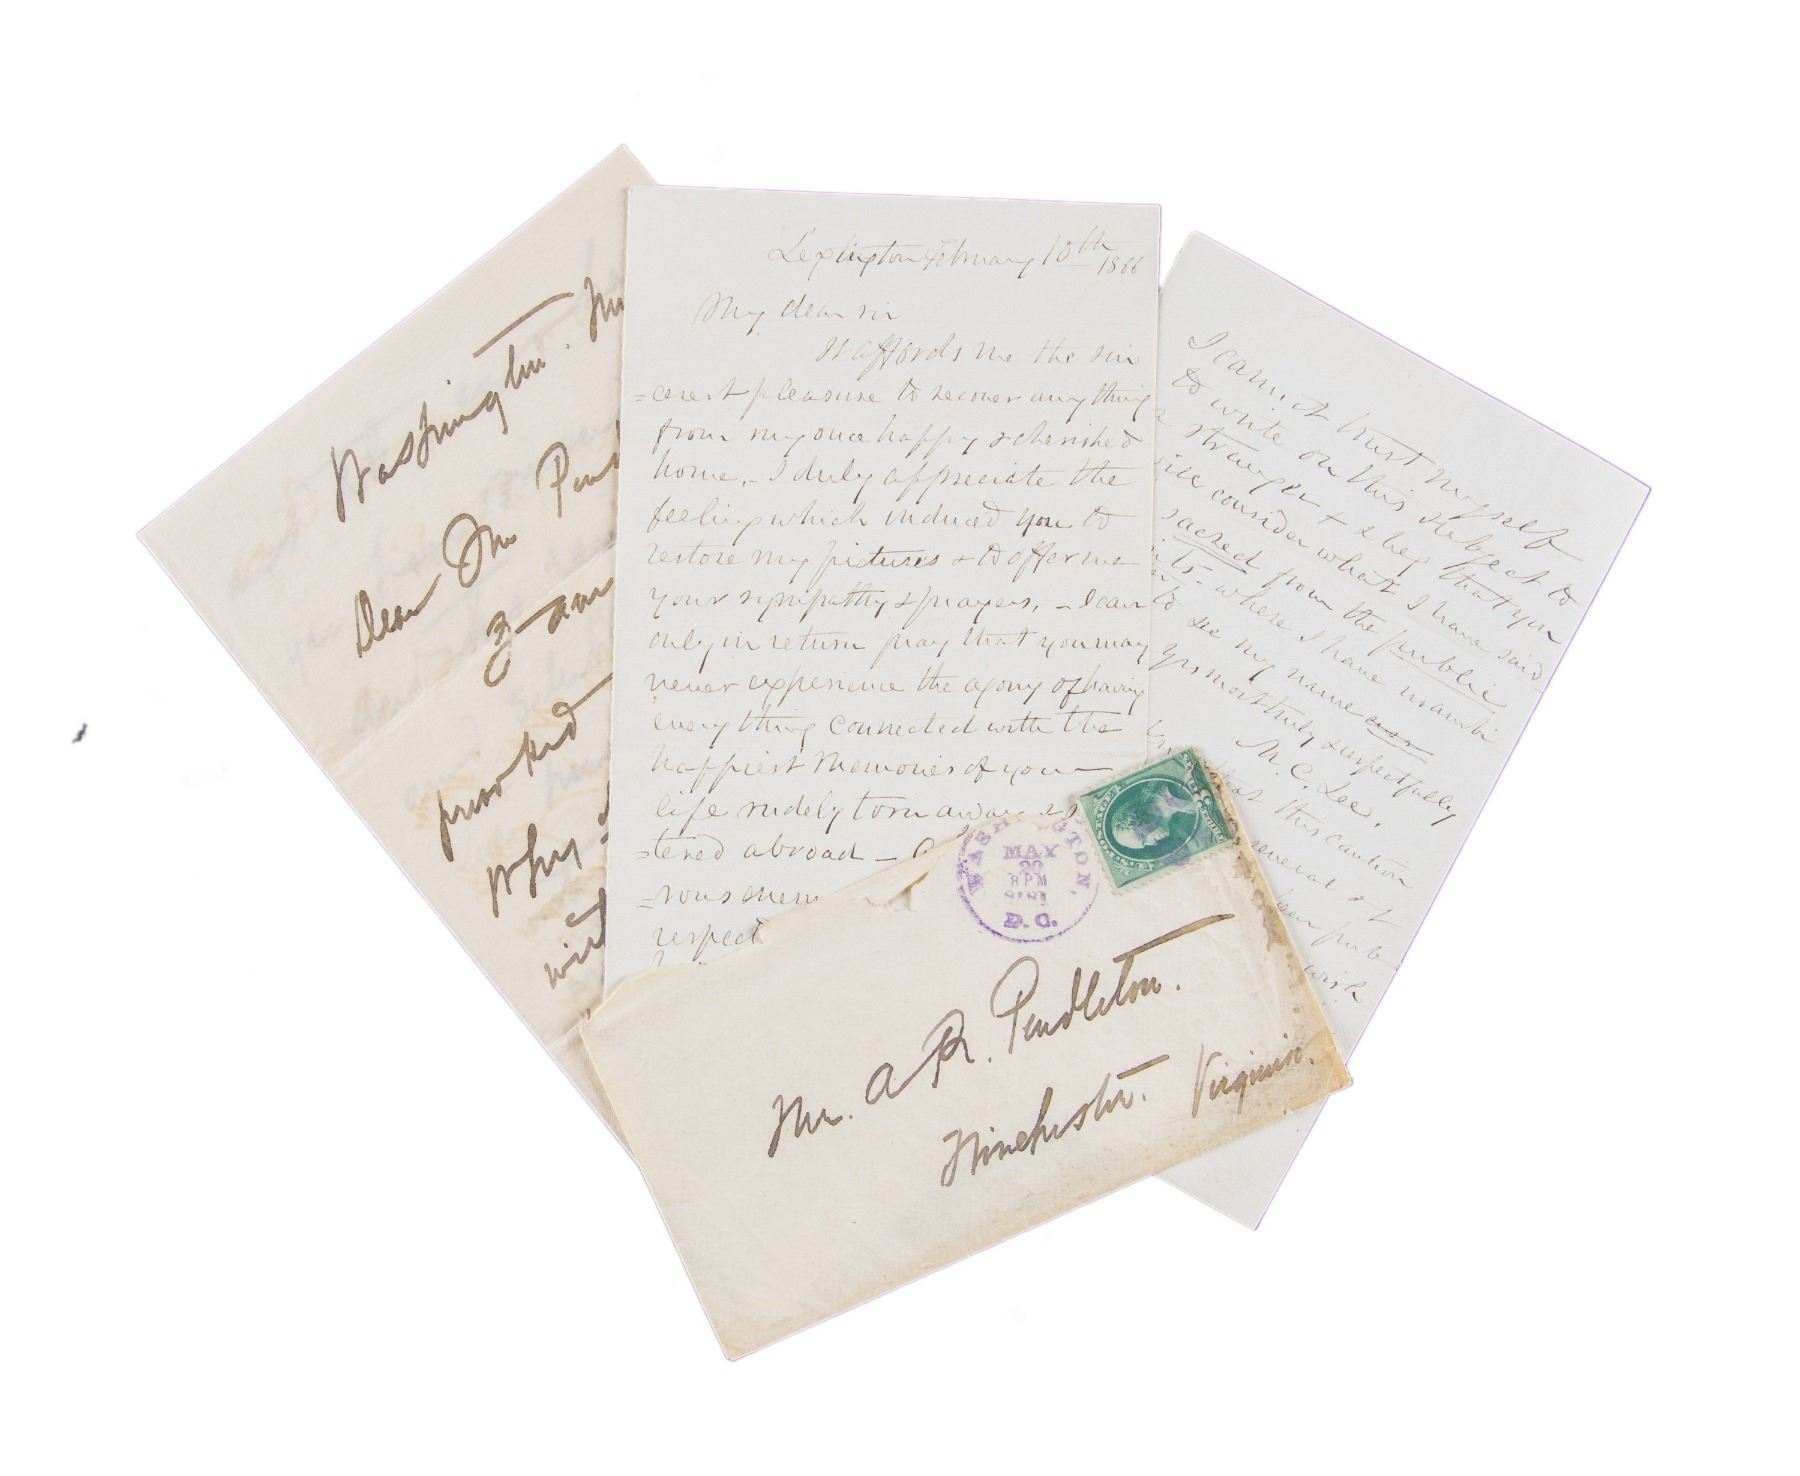 Washington.
Dear Mr.
provoked
why
Lexington February 10th
1866
My dear sir
It affords me the sin
=cerest pleasure to recover anything
from my once happy & cherished
home. - I duly appreciate the
feeling which induced you to
restore my pictures & to offer me
your sympathy & prayers. - I can
only in return pray that you may
never experience the agony of having
everything connected with the
happiest memories of your
life rudely torn away &
=tered abroad -
=rous
respect
I cannot trust myself
to write on this subject to
a stranger & beg that you
will consider what I have said
sacred from the public
where I have
to see my name
yrs most truly & respectfully
M. C. Lee.
that this caution
several
been pub
wish
WASHINGTON,
MAY
8 PM
D.C.
POSTAGE
Mr. A R. Pendleton.
Winchester. Virginia.